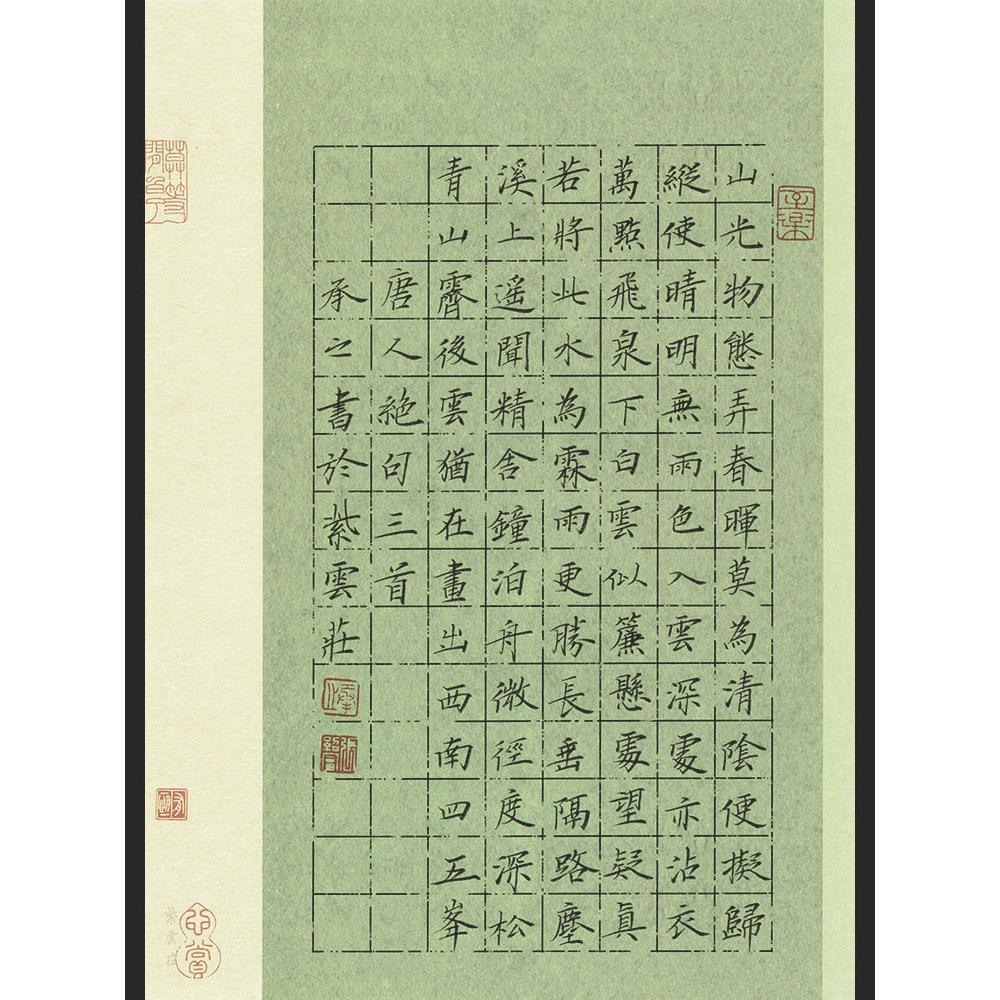 山光物態弄春暉莫為清陰便擬歸
縱使晴明無雨色入雲深處亦沾衣
萬點飛泉下白雲似簾懸處望疑真
若將此水為霖雨更勝長垂隔路塵
溪上遥聞精舍鐘泊舟微徑度深松
青山霽後雲猶在畫出西南四五峯
唐人絕句三首
承之書於紫雲莊
心賞